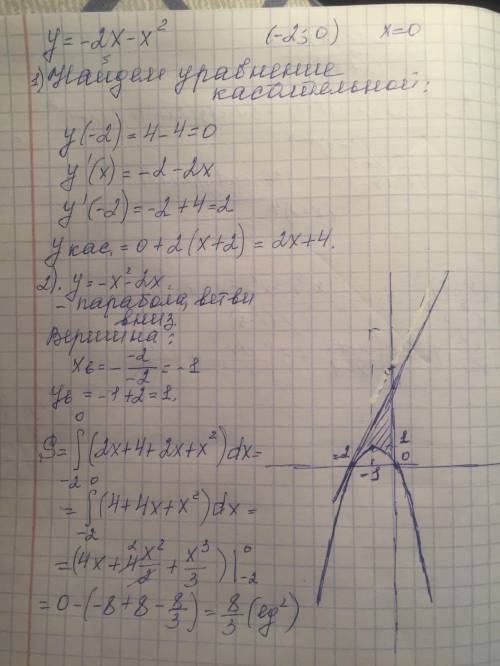 y = -2x - x²   (-2; 0)   x=0
1) Найдем уравнение
касательной:
y(-2) = 4-4=0
y'(x) = -2-2x
y'(-2) = -2+4=2
y кас. = 0+2(x+2) = 2x+4.
2). y = -x²-2x.
- парабола, ветви
вниз.
Вершина:
xв = - -2/-2 = -1
yв = -1+2=1.
S = ∫₋₂⁰ (2x+4+2x+x²)dx =
= ∫₋₂⁰ (4+4x+x²)dx =
= (4x + 4 x²/2 + x³/3) |₋₂⁰
= 0 - (-8+8 - 8/3) = 8/3 (ед²)
-2
-1
1
0